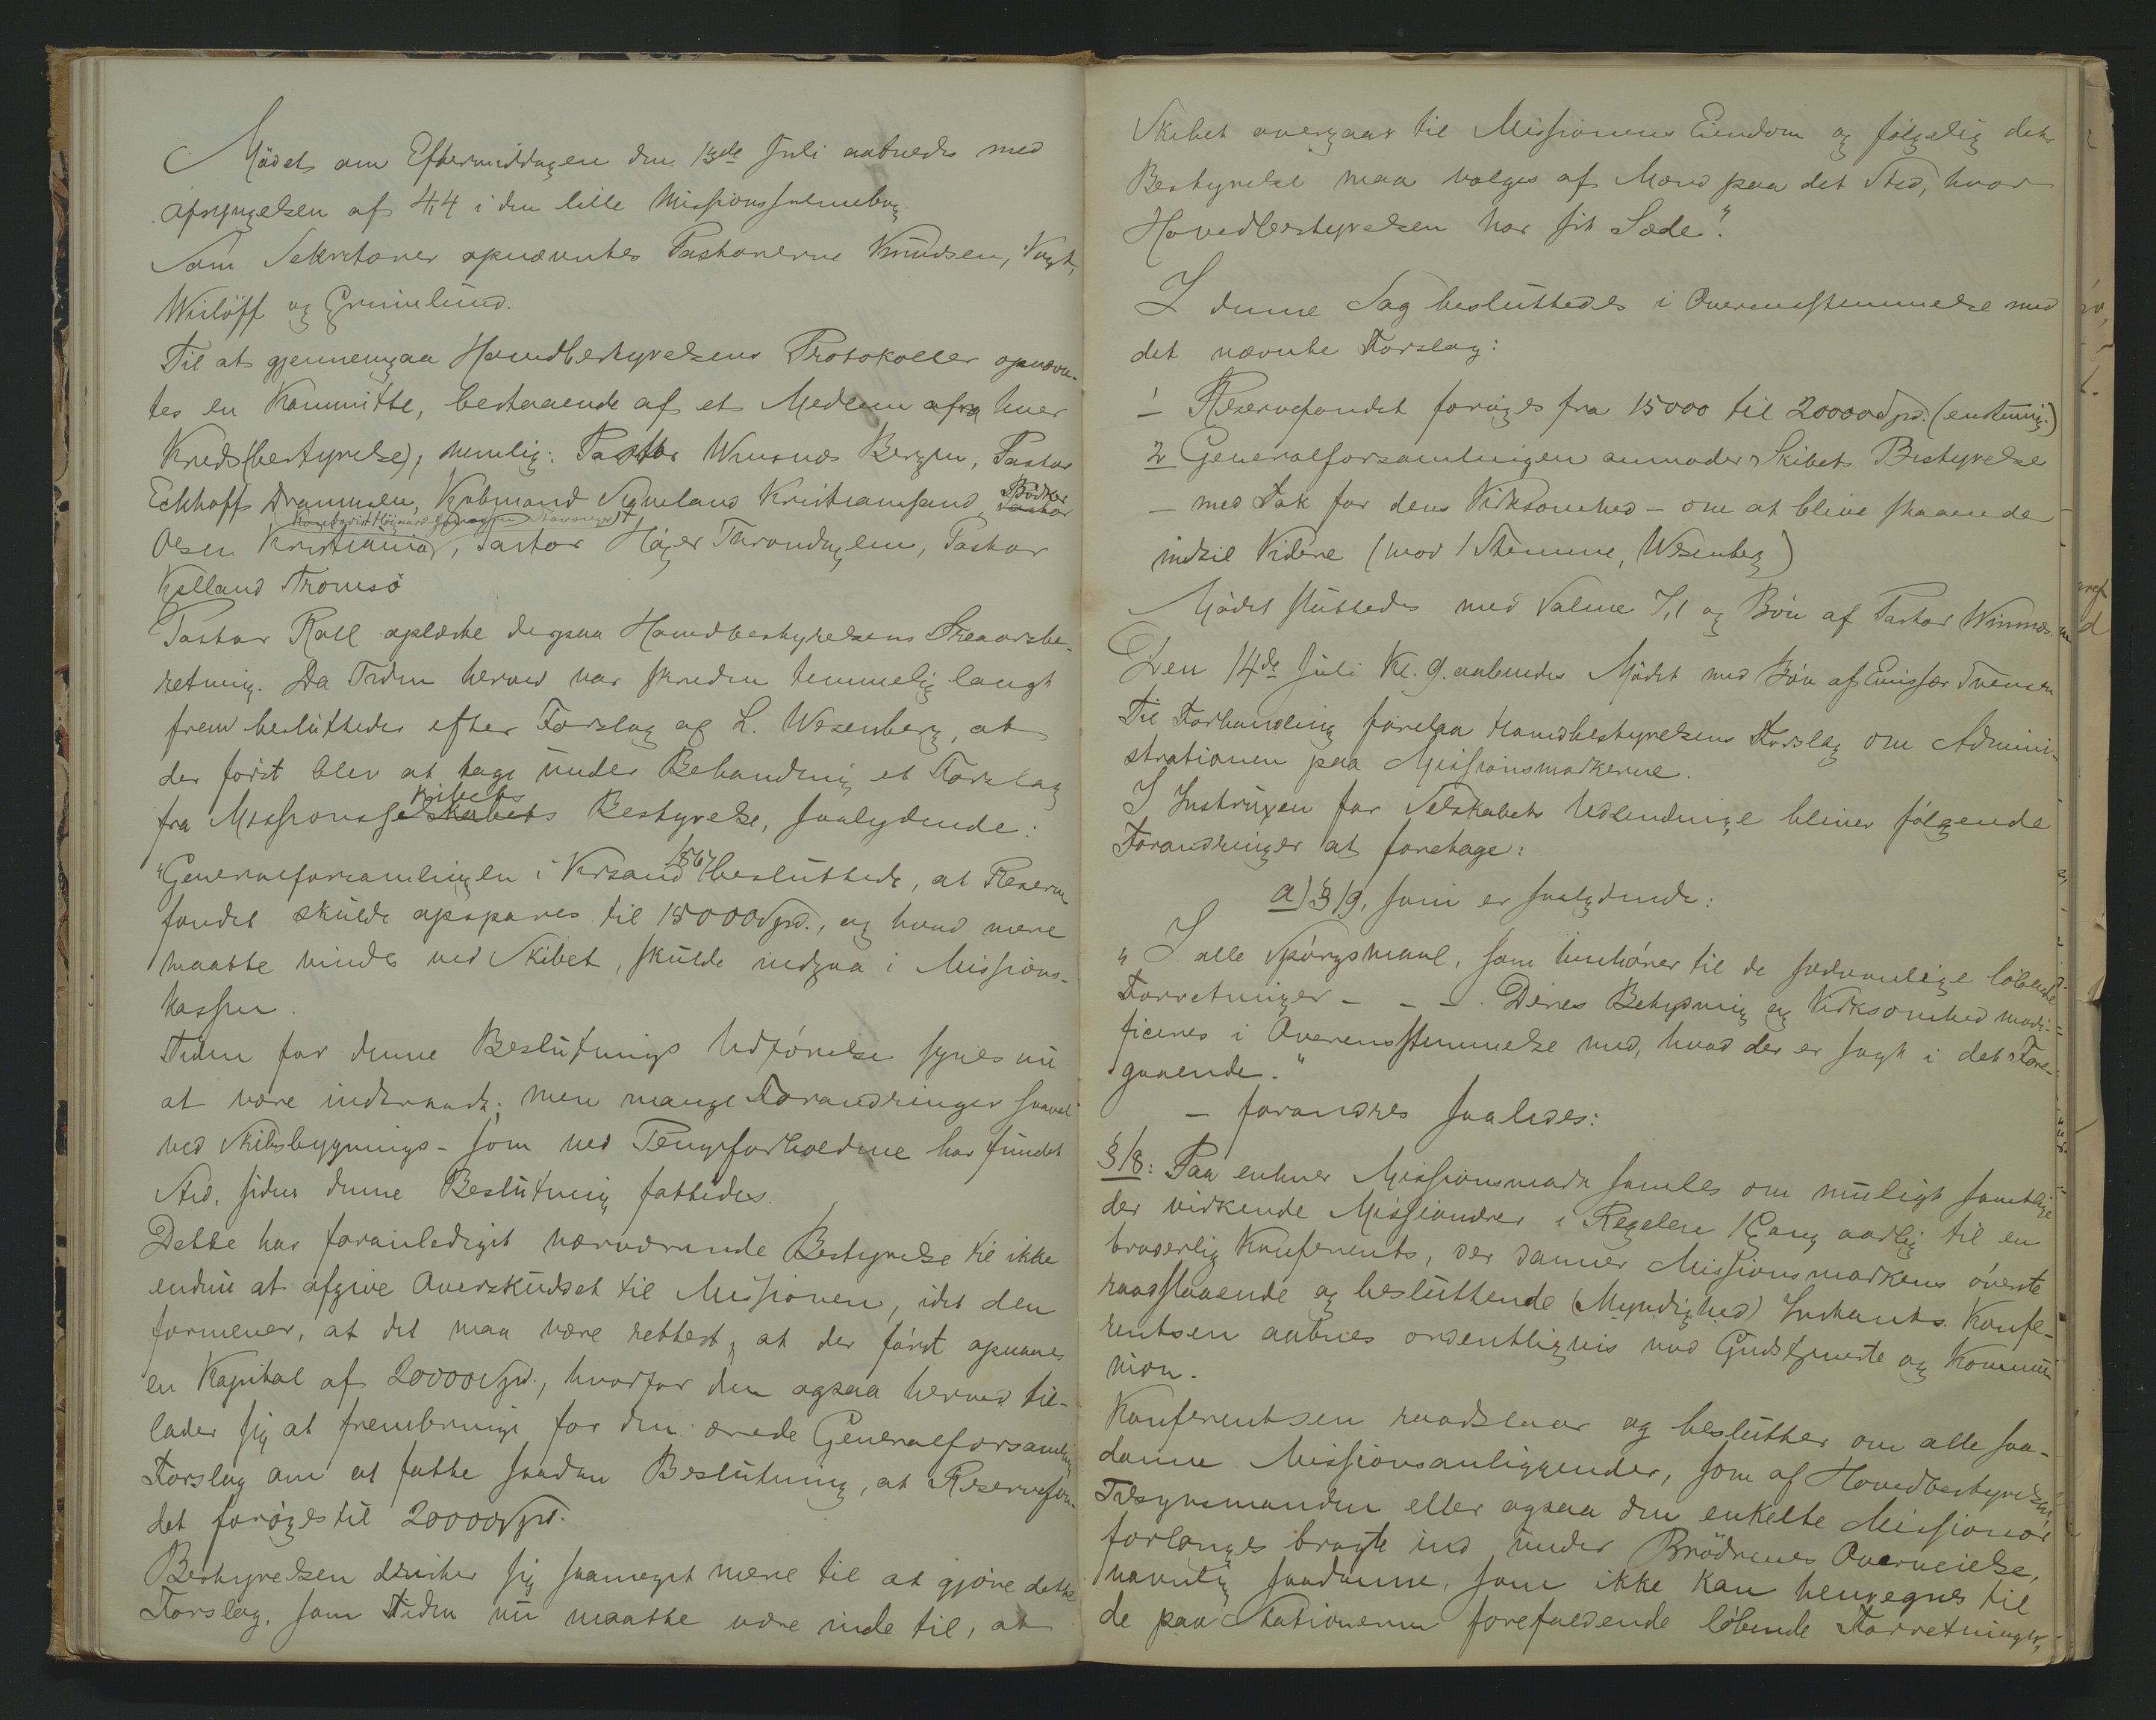 Mödet om Eftermiddagen den 13de Juli aabnedes med
Afsyngelsen af 44 i den lille Missionssalmebog.
Som Sekretærer opnævntes Pastorerne Knudsen, Vogt,
Wislöff og Grimelund.
Til at gjennemgaa Hovedbestyrelsens Protokoller opnævn-
tes en Kommitte, bestaaende af et Medlem fra hver
Kreds(bestyrelse), nemlig: Pastor Wiisnæs Bergen, Pastor
Eckhoff Drammen, Kjöbmand Svaneland Kristianssand, Bödker
Olsen Kristiania, Pastor Høyer Throndhjem, Pastor
Kjelland Tromsö
Pastor Roll oplæste derpaa Hovedbestyrelsens Treaarsbe-
retning. Da Tiden herved var skreden temmelig langt
frem besluttedes efter Forslag af L. Wesenberg, at
der först blev at tage under Behandling et Forslag
fra Missionsskibets Bestyrelse, saalydende:
"Generalforsamlingen i Krsand 1867 besluttede, at Reserve
fondet skulde opspares til 15000 Spd., og hvad mere
maatte vindes ved Skibet, skulde indgaa i Missions-
kassen.
Tiden for denne Beslutnings Udförelse synes nu
at være indtraadt; men mange Forandringer saavel
ved Skibsbygnings- som ved Pengeforholdene har fundet
Sted, siden denne Beslutning fattedes.
Dette har foranlediget nærværende Bestyrelse til ikke
endnu at afgive Overskudset til Missionen, idet den
formener, at det maa være rettest, at der först opnaaes
en Kapital af 20000 Spd., hvorfor den ogsaa herved til-
lader sig at frembringe for den ærede Generalforsamling
Forslag om at fatte saadan Beslutning, at Reservefon-
det forøges til 20000 Spd.
Bestyrelsen drister sig saameget mere til at gjöre dette
Forslag, som Tiden nu maatte være inde til, at
Skibet overgaar til Missionens Eiendom og fölgelig dets
Bestyrelse maa vælges af Mænd paa det Sted, hvor
Hovedbestyrelsen har sit Sæde."
I denne Sag besluttedes i Overensstemmelse med
det nævnte Forslag:
1 Reservefondet forøges fra 15000 til 20000 Spd. (enstemmig.)
2 Generalforsamlingen anmoder Skibets Bestyrelse
– med Tak for dens Virksomhed – om at blive staaende
indtil Videre (mod 1 Stemme, Wesenberg)
Mödet sluttedes med Salme 7,1 og Bön af Pastor Wisnæs.
Den 14de Juli Kl. 9. aabnedes Mödet med Bön af Emissær Svensen
Til Forhandling forelaa Hovedbestyrelsens Forslag om Admini-
strationen paa Missionsmarkerne.
I Instruxen for Selskabets Udsendinge bliver fölgende
Forandringer at foretage:
a) § 19, som er saalydende:
"I alle Spörgsmaal, som henhörer til de sædvanlige löbende
Forretninger – – –. Deres Betydning og Virksomhed modi-
ficeres i Overensstemmelse med, hvad der er sagt i det Fore-
gaaende."
– forandres saaledes:
§ 18: Paa enhver Missionsmark samles om muligt samtlige
der virkende Missionærer i Regelen 1 Gang aarlig til en
broderlig Konferents, der danner Missionsmarkens överste
raadslaaende og besluttende (Myndighed) Instants. Konfe-
rentsen aabnes ordentligvis med Gudstjeneste og Kommu-
nion.
Konferentsen raadslaar og beslutter om alle saa-
danne Missionsanliggender, som af Hovedbestyrelsen
Tilsynsmanden eller ogsaa den enkelte Missionær
forlanges bragte ind under Brödrenes Overveielse,
navnlig saadanne, som ikke kan henregnes til
de paa Stationerne forefaldende löbende Forretninger,